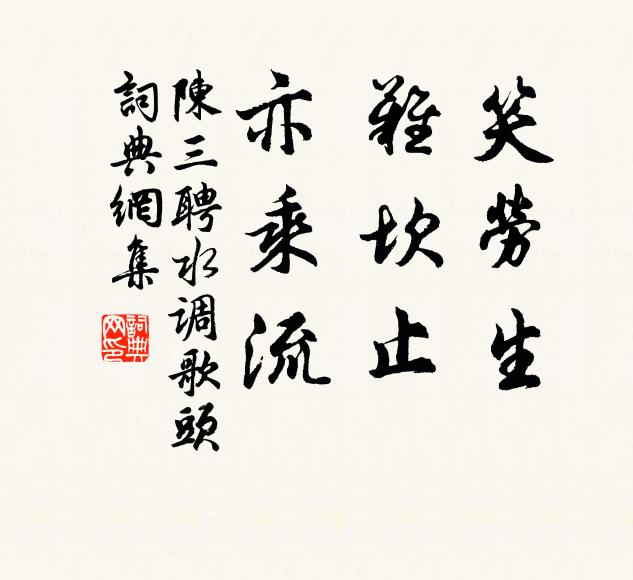 笑勞生
難坎止
亦乘流
陳三聘水调歌頭
詞典網集
詞典网印